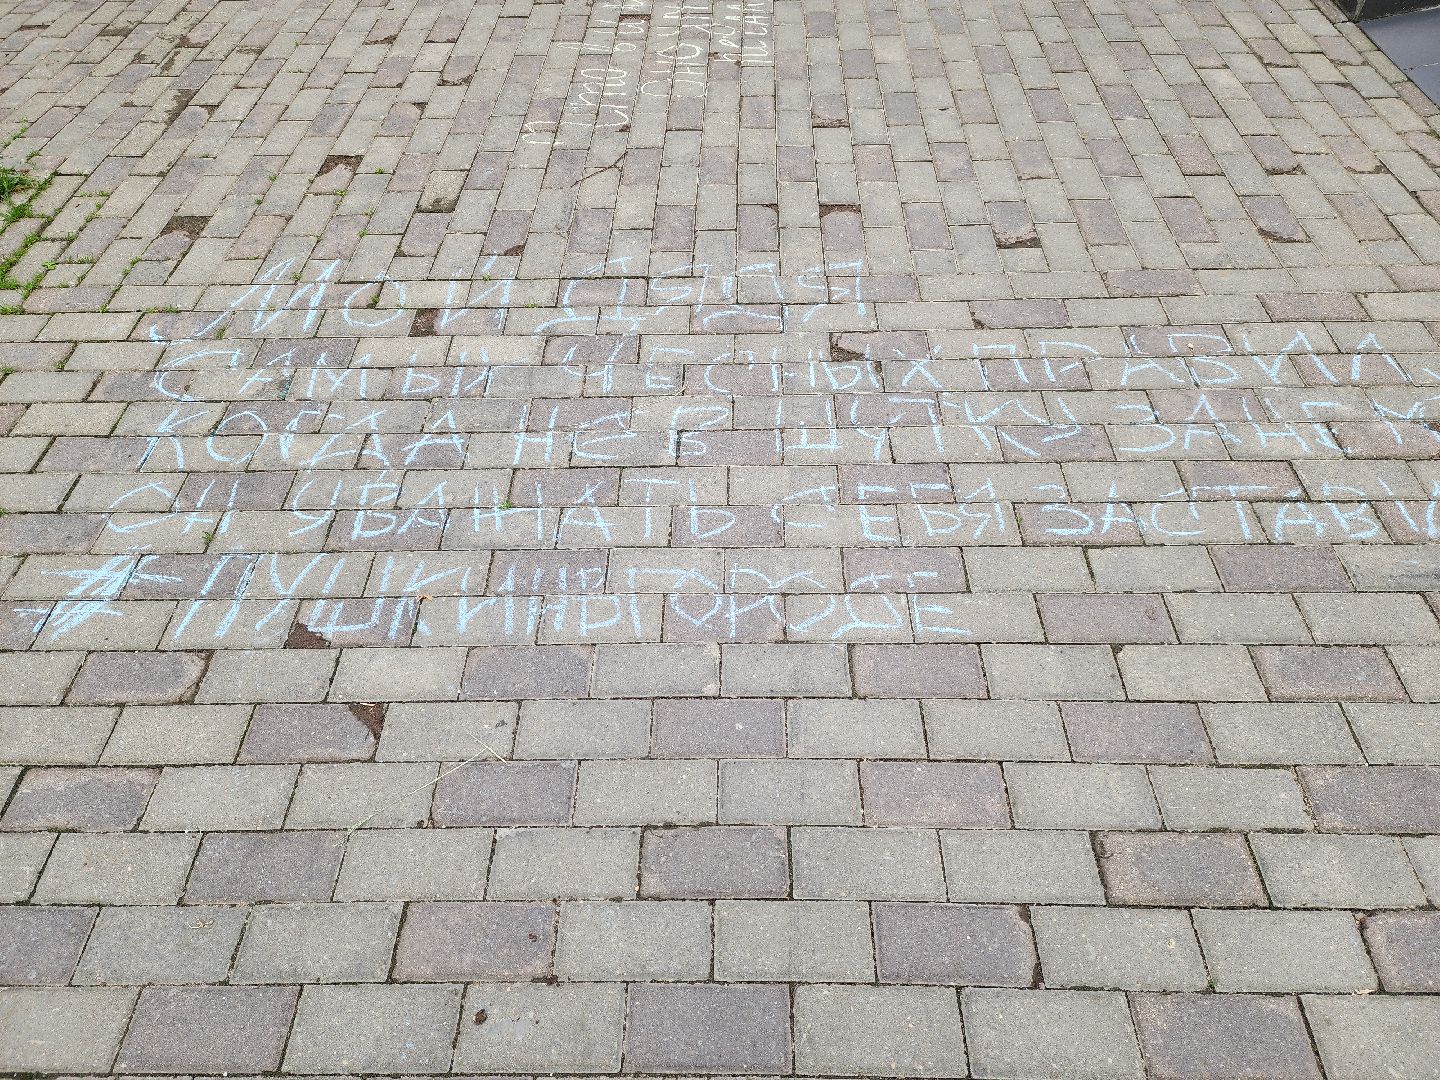 МОЙ ДЯДЯ
САМЫЙ ЧЕСНЫХ ПРАВИЛ,
КОГДА НЕ В ШУТКУ ЗАНЕМ
ОН УВАЖАТЬ СЕБЯ ЗАСТАВИ
#ПУШКИНВГОРОДЕ